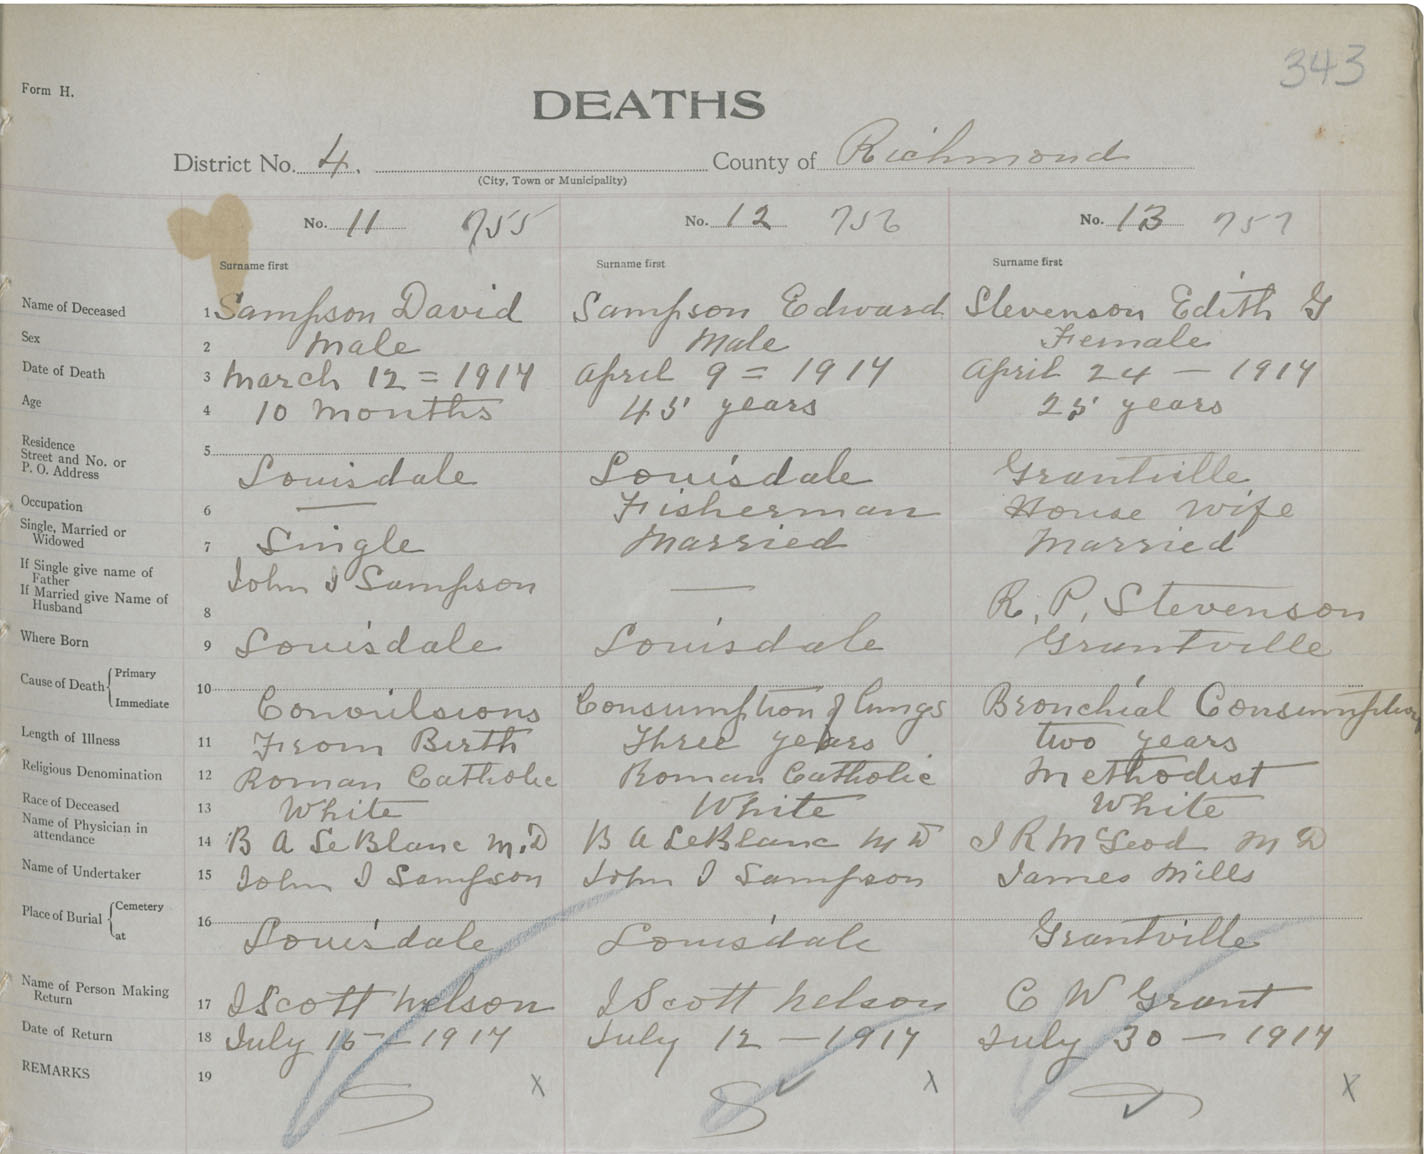 343
Form H.
DEATHS
District No. 4. County of Richmond
(City, Town or Municipality)
No. 11 755 No. 12 756 No. 13 757
Surname first Surname first Surname first
Name of Deceased 1 Sampson David Sampson Edward Stevenson Edith G
Sex 2 Male Male Female
Date of Death 3 March 12 = 1914 April 9 = 1914 April 24 — 1914
Age 4 10 months 45 years 25 years
Residence
Street and No. or 5
P. O. Address Louisdale Louisdale Grantville
Occupation 6 — Fisherman House wife
Single, Married or
Widowed 7 Single Married Married
If Single give name of
Father John J Sampson —
If Married give Name of
Husband 8 R. P. Stevenson
Where Born 9 Louisdale Louisdale Grantville
Cause of Death { Primary 10
Immediate Convulsions Consumption of lungs Bronchial Consumption
Length of Illness 11 From Birth Three years two years
Religious Denomination 12 Roman Catholic Roman Catholic Methodist
Race of Deceased 13 White White White
Name of Physician in
attendance 14 B A LeBlanc M.D B A LeBlanc M D J R McLeod M D
Name of Undertaker 15 John J Sampson John J Sampson James Mills
Place of Burial { Cemetery 16
at Louisdale Louisdale Grantville
Name of Person Making
Return 17 J Scott Nelson J Scott Nelson C W Grant
Date of Return 18 July 15 — 1914 July 12 — 1914 July 30 — 1914
REMARKS 19 X X X